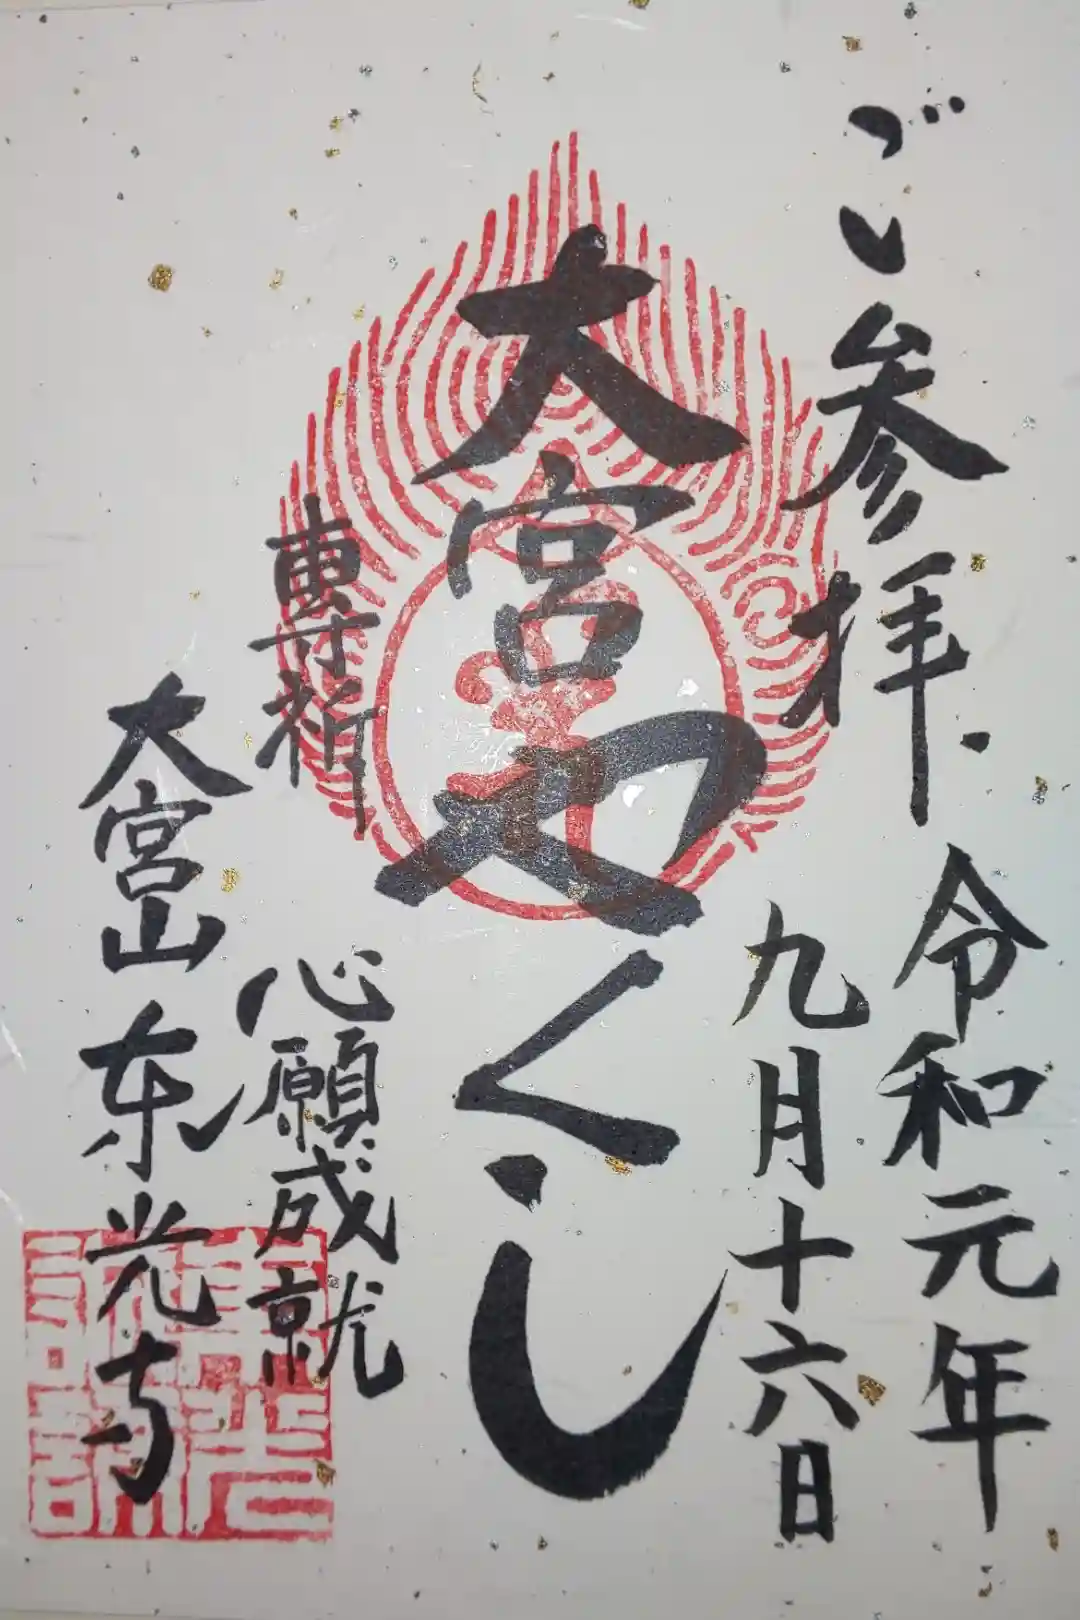 ご参拝
令和元年
九月十六日
大宮やくし
專祈
心願成就
大宮山
東光寺